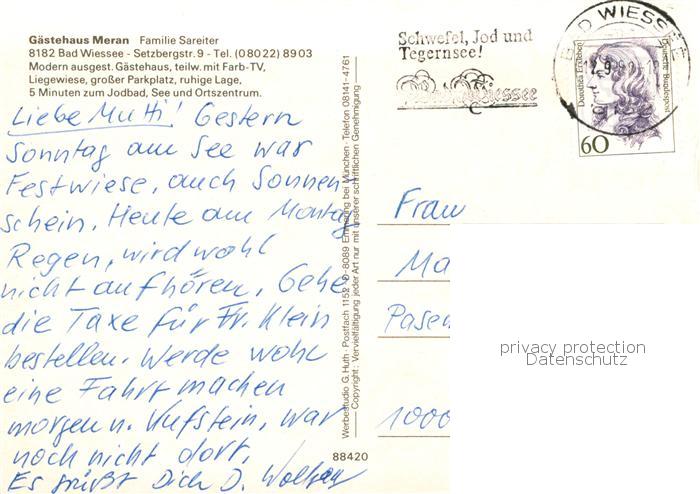 Gästehaus Meran Familie Sareiter
8182 Bad Wiessee - Setzbergstr. 9 - Tel. (08022) 8903
Modern ausgest. Gästehaus, teilw. mit Farb-TV,
Liegewiese, großer Parkplatz, ruhige Lage,
5 Minuten zum Jodbad, See und Ortszentrum.
Liebe Mutti! Gestern
Sonntag am See war
Festwiese, auch Sonnen-
schein. Heute am Montag
Regen, wird wohl
nicht aufhören. Gehe
die Taxe für Fr. Klein
bestellen. Werde wohl
eine Fahrt machen
morgen n. Kufstein, war
noch nicht dort.
Es grüßt Dich D. Wolfgang
Werbestudio G. Huth · Postfach 1152 · D-8089 Emmering bei München · Telefon 08141-4761
Copyright: Vervielfältigung jeder Art nur mit unserer schriftlichen Genehmigung
88420
Schwefel, Jod und
Tegernsee!
Bad Wiessee
BAD WIESSEE
Dorothea Erxleben
Deutsche Bundespost
60
Frau
Ma
Pasen
1000
privacy protection
Datenschutz